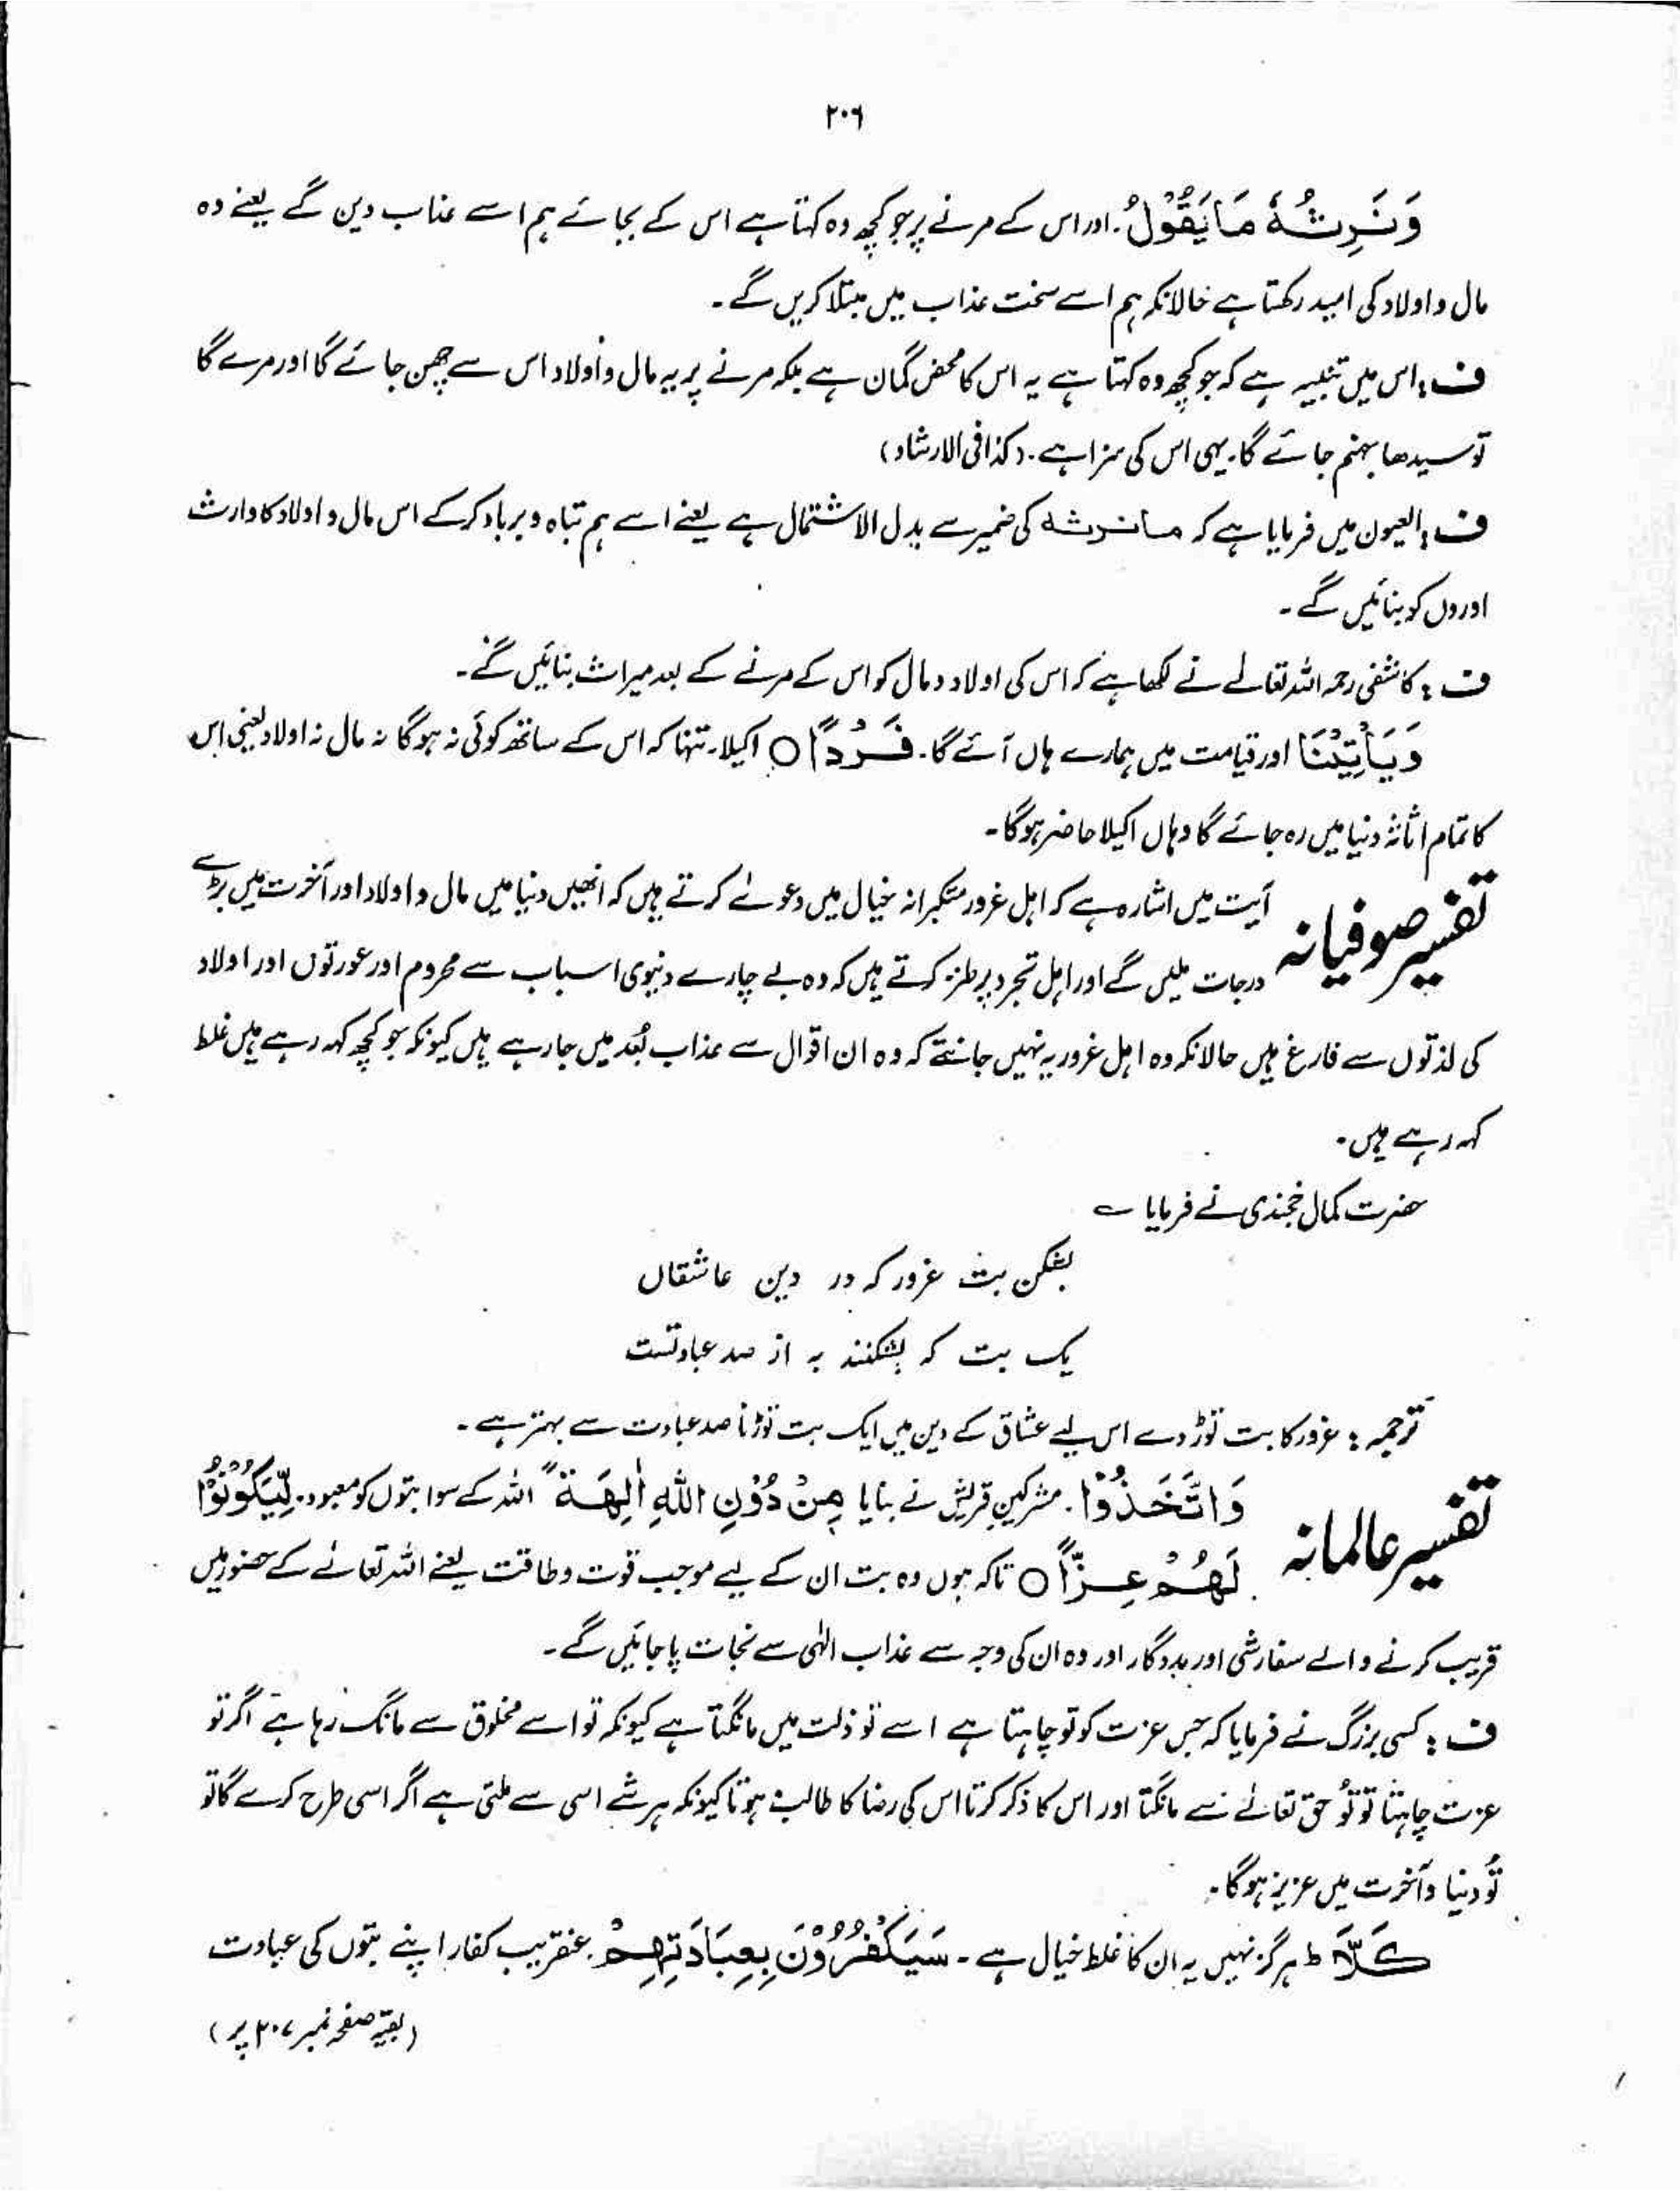 ۲۰۶
وَنَرِثُهٗ مَا يَقُوْلُ۔ اور اس کے مرنے پر جو کچھ وہ کہتا ہے اس کے بجائے ہم اسے عذاب دیں گے یعنے وہ
مال و اولاد کی امید رکھتا ہے حالانکہ ہم اسے سخت عذاب میں مبتلا کریں گے۔
ف : اس میں تنبیہ ہے کہ جو کچھ وہ کہتا ہے یہ اس کا محض گمان ہے بلکہ مرنے پر یہ مال و اولاد اس سے چھن جائے گا اور مرے گا
تو سیدھا جہنم جائے گا۔ یہی اس کی سزا ہے۔ (کذا فی الارشاد)
ف : العیون میں فرمایا ہے کہ ما نرثہ کی ضمیر سے بدل الاشتمال ہے یعنے اسے ہم تباہ و برباد کرکے اس مال و اولاد کا وارث
اوروں کو بنائیں گے۔
ف : کاشفی رحمہ اللہ تعالےٰ نے لکھا ہے کہ اس کی اولاد و مال کو اس کے مرنے کے بعد میراث بنائیں گے۔
وَيَأْتِيْنَا اور قیامت میں ہمارے ہاں آئے گا۔ فَرْدًا ○ اکیلا۔ تنہا کہ اس کے ساتھ کوئی نہ ہوگا نہ مال نہ اولاد یعنی اس
کا تمام اثاثہ دنیا میں رہ جائے گا وہاں اکیلا حاضر ہوگا۔
تفسیر صوفیانہ آیت میں اشارہ ہے کہ اہل غرور متکبرانہ خیال میں دعوےٰ کرتے ہیں کہ انھیں دنیا میں مال و اولاد اور آخرت میں بڑے
درجات ملیں گے اور اہل تجرد پر طنز کرتے ہیں کہ وہ بے چارے دنیوی اسباب سے محروم اور عورتوں اور اولاد
کی لذتوں سے فارغ ہیں حالانکہ وہ اہل غرور یہ نہیں جانتے کہ وہ ان اقوال سے عذاب بُعد میں جا رہے ہیں کیونکہ جو کچھ کہہ رہے ہیں غلط
کہہ رہے ہیں۔
حضرت کمال خجندی نے فرمایا ؎
بشکن بت غرور کہ در دین عاشقاں
یک بت کہ بشکنند بہ از صد عبادتست
ترجمہ : غرور کا بت توڑ دے اس لیے عشاق کے دین میں ایک بت توڑنا صد عبادت سے بہتر ہے۔
تفسیر عالمانہ وَاتَّخَذُوْا۔ مشرکین قریش نے بنایا مِنْ دُوْنِ اللّٰهِ اٰلِهَةً اللہ کے سوا بتوں کو معبود۔ لِّيَكُوْنُوْا
لَهُمْ عِزًّا ○ تاکہ ہوں وہ بت ان کے لیے موجب قوت و طاقت یعنے اللہ تعالےٰ کے حضور میں
قریب کرنے والے سفارشی اور مددگار اور وہ ان کی وجہ سے عذاب الٰہی سے نجات پا جائیں گے۔
ف : کسی بزرگ نے فرمایا کہ جس عزت کو تو چاہتا ہے اسے تو ذلت میں مانگتا ہے کیونکہ تو اسے مخلوق سے مانگ رہا ہے اگر تو
عزت چاہتا تو تُو حق تعالےٰ سے مانگتا اور اس کا ذکر کرتا اس کی رضا کا طالب ہوتا کیونکہ ہر شے اسی سے ملتی ہے اگر اسی طرح کرے گا تو
تُو دنیا و آخرت میں عزیز ہوگا۔
كَلَّا ط ہرگز نہیں یہ ان کا غلط خیال ہے۔ سَيَكْفُرُوْنَ بِعِبَادَتِهِمْ۔ عنقریب کفار اپنے بتوں کی عبادت
(بقیہ صفحہ نمبر ۲۰۷ پر)